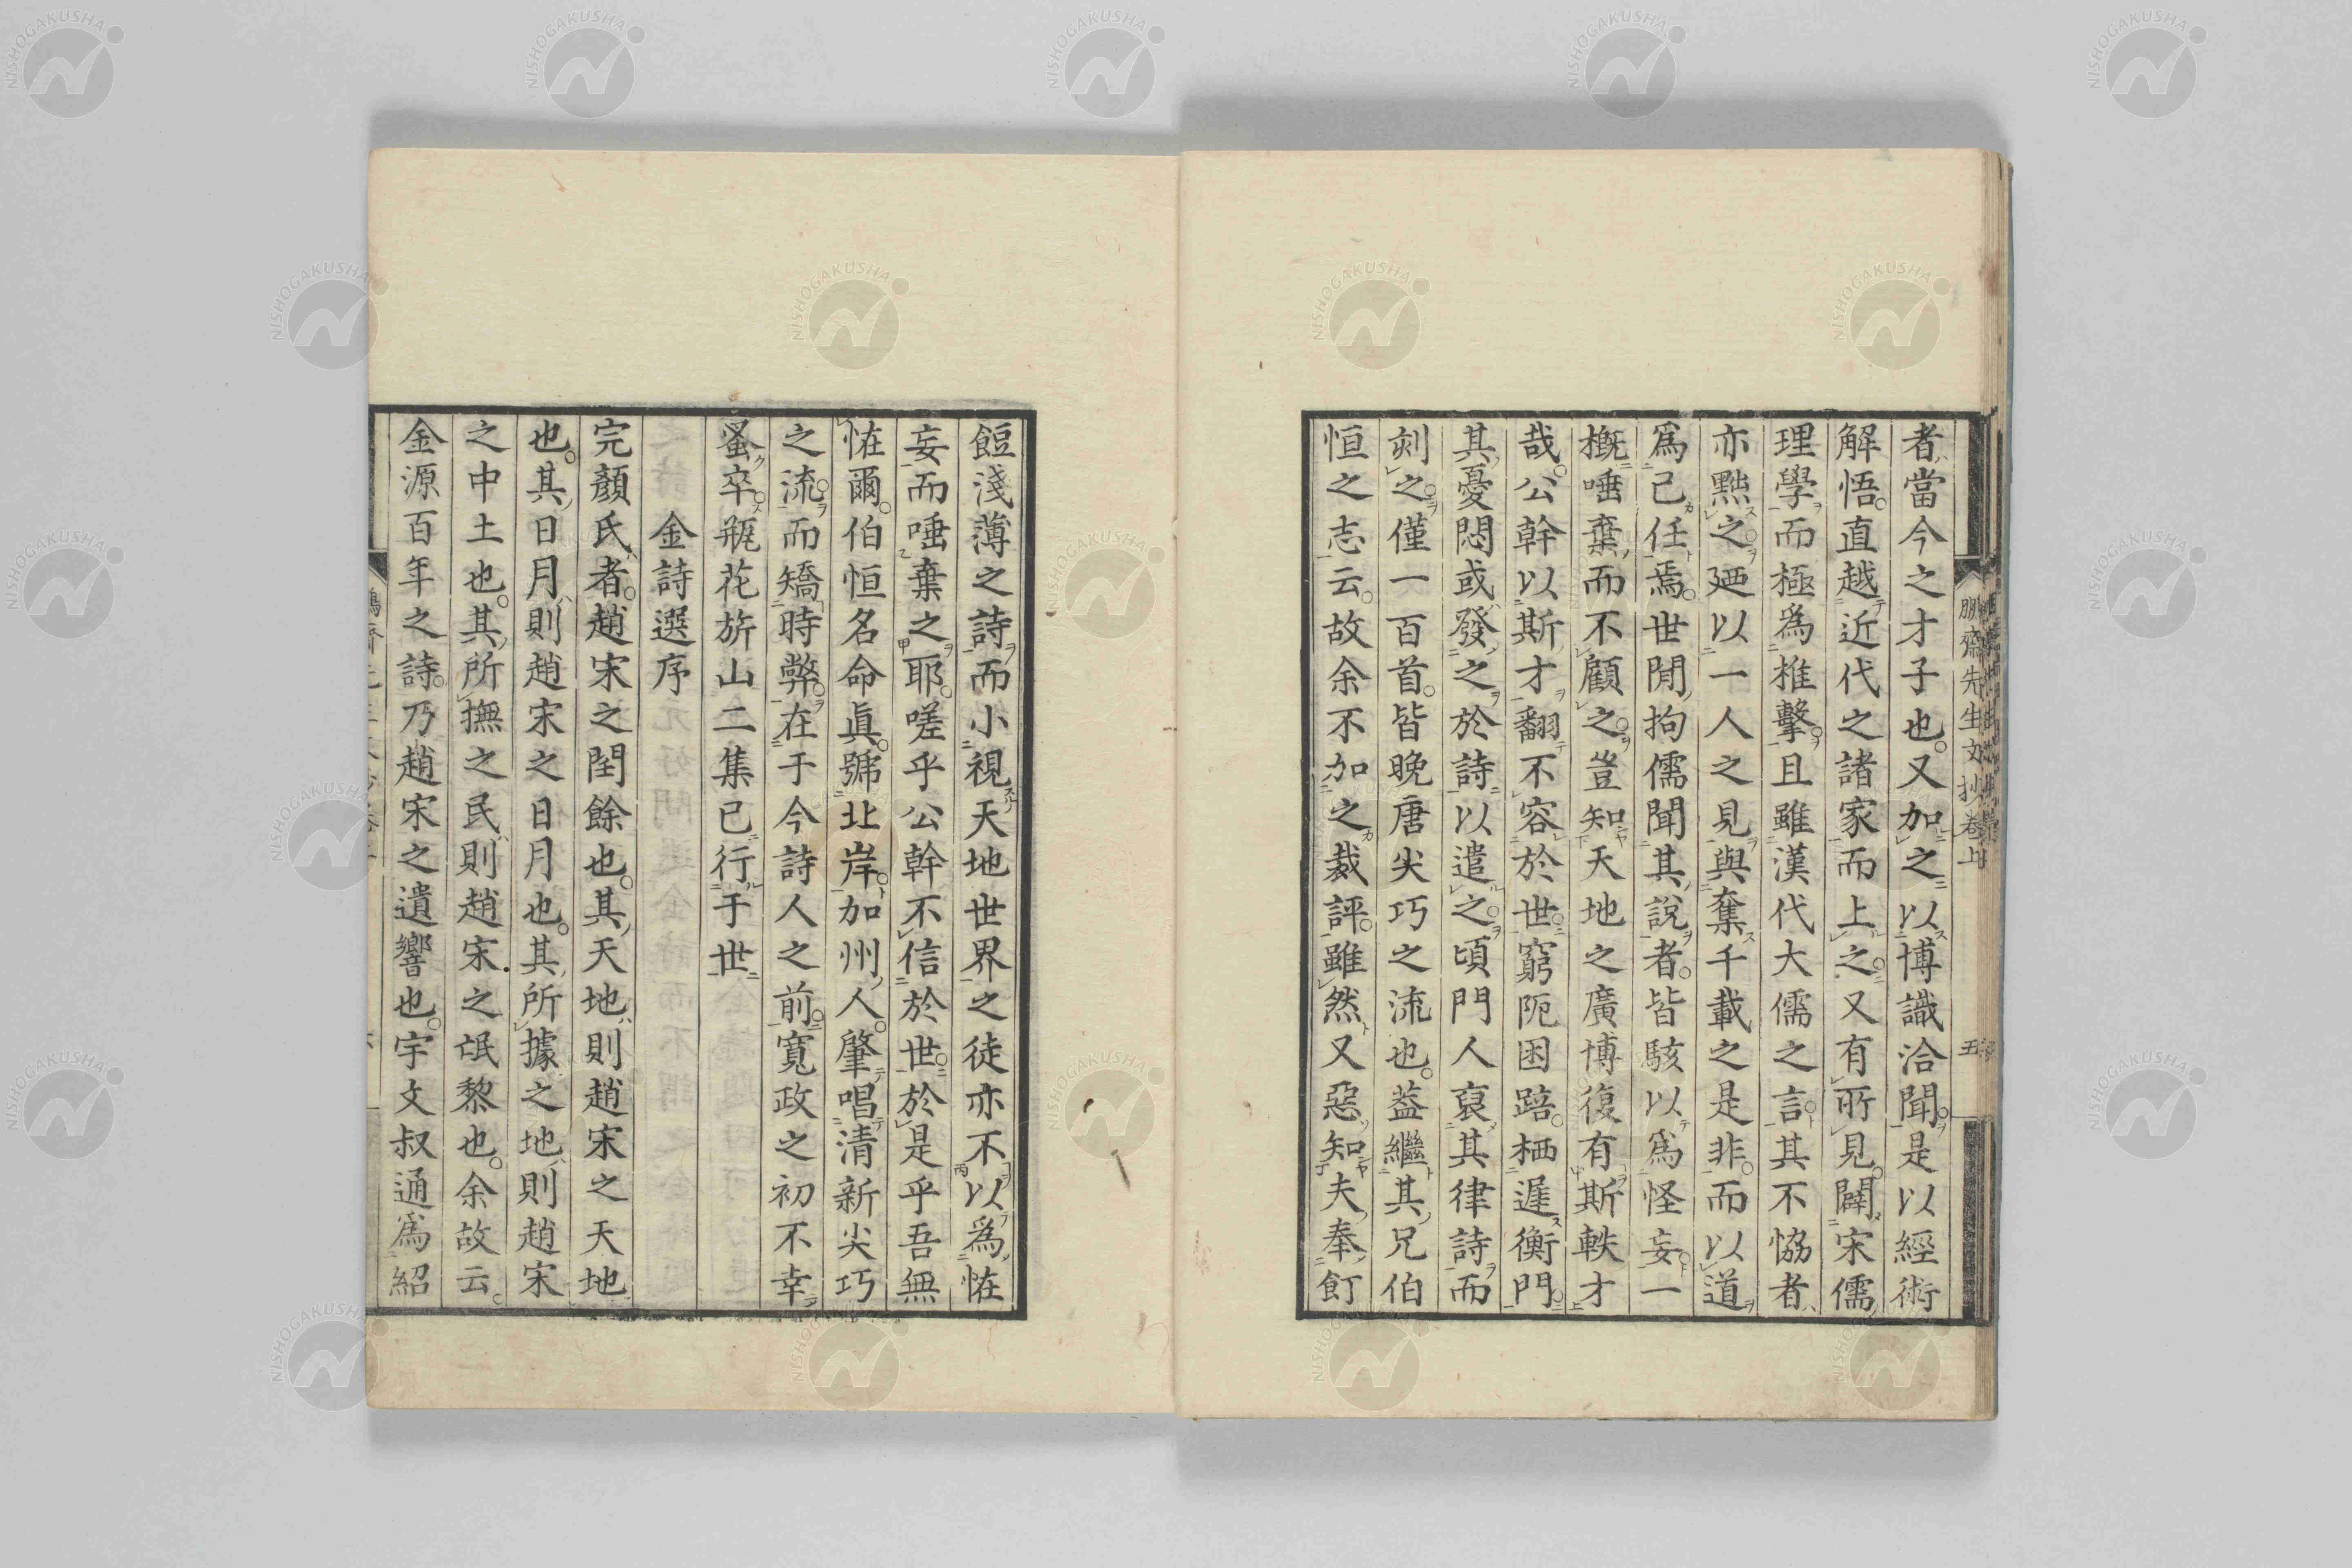 者當今之才子也又加之以博識洽聞是以經術
解悟直越近代之諸家而上之又有所見闢宋儒
理學而極爲推擊且雖漢代大儒之言其不恊者
亦黜之廼以一人之見與奪千載之是非而以道
爲己任焉世閒拘儒聞其說者皆駭以爲怪妄一
概唾棄而不顧之豈知天地之廣博復有斯軼才
哉公幹以斯才翻不容於世窮阨困踣栖遲衡門
其憂悶或發之於詩以遣之頃門人裒其律詩而
刻之僅一百首皆晩唐尖巧之流也葢繼其兄伯
恒之志云故余不加之裁評雖然又惡知夫奉飣
餖淺薄之詩而小視天地世界之徒亦不以爲恠
妄而唾棄之耶嗟乎公幹不信於世於是乎吾無
恠爾伯恒名命眞號北岸加州人肇唱清新尖巧
之流而矯時弊在于今詩人之前寬政之初不幸
蚤卒瓶花旂山二集已行于世
金詩選序
完顏氏者趙宋之閏餘也其天地則趙宋之天地
也其日月則趙宋之日月也其所據之地則趙宋
之中土也其所撫之民則趙宋之氓黎也余故云
金源百年之詩乃趙宋之遺響也宇文叔通爲紹
鵬齋先生文抄卷上
五
NISHOGAKUSHA